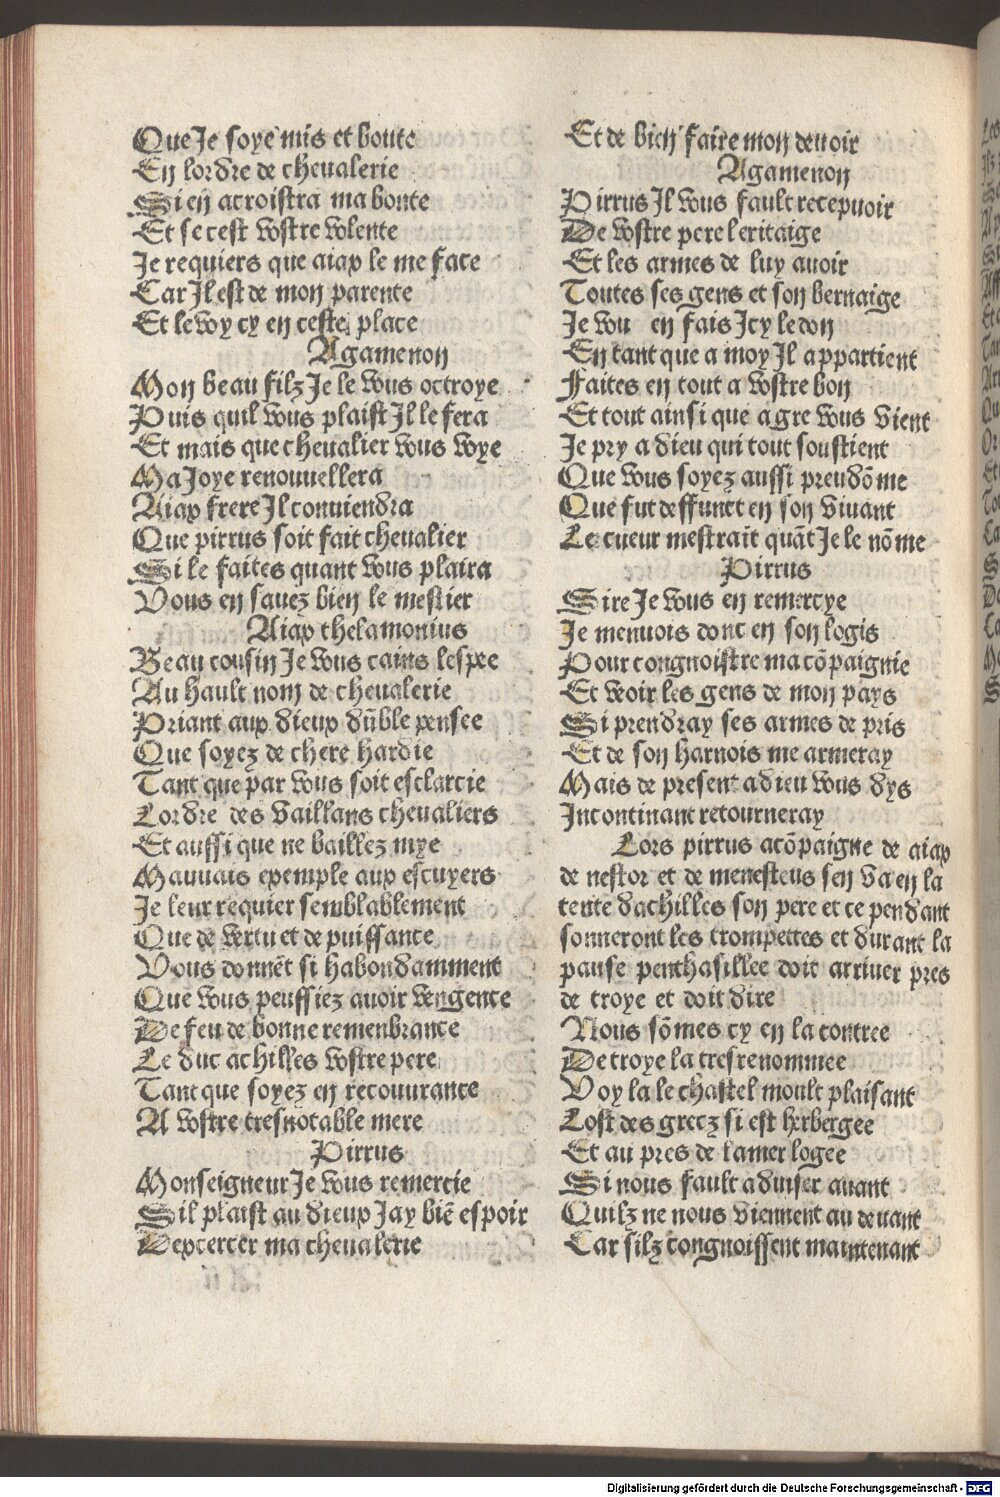 Que Je soye mis et boute
En lordre de cheualerie
Si en acroistra ma bonte
Et se cest vostre volente
Je requiers que aiax le me face
Car Jl est de mon parente
Et le voy cy en ceste place
Agamenon
Mon beau filz Je le vous octroye
Puis quil vous plaist Jl le fera
Et mais que cheualier vous voye
Ma Joye renouuellera
Aiax frere Jl conuiendra
Que pirrus soit fait cheualier
Si le faites quant vous plaira
Vous en sauez bien le mestier
Aiax thelamonius
Beau cousin Je vous cains lespee
Au hault nom de cheualerie
Priant aux dieux dũble pensee
Que soyez de chere hardie
Tant que par vous soit esclarcie
Lordre des vaillans cheualiers
Et aussi que ne baillez mye
Mauuais exemple aux escuyers
Je leur requier semblablement
Que de vertu et de puissance
Vous donnẽt si habondamment
Que vous peussiez auoir vengence
De feu de bonne remenbrance
Le duc achilles vostre pere
Tant que soyez en recouurance
A vostre tresnotable mere
Pirrus
Monseigneur Je vous remercie
Sil plaist au dieux Jay biẽ espoir
Dexcercer ma cheualerie
Et de bien faire mon deuoir
Agamenon
Pirrus Jl vous fault recepuoir
De vostre pere leritaige
Et les armes de luy auoir
Toutes ses gens et son bernaige
Je vou en fais Jcy le don
En tant que a moy Jl appartient
Faites en tout a vostre bon
Et tout ainsi que a gre vous vient
Je pry a dieu qui tout soustient
Que vous soyez aussi preudõme
Que fut deffunct en son viuant
Le cueur mestraĩt quãt Je le nõme
Pirrus
Sire Je vous en remercye
Je menuois donc en son logis
Pour congnoistre ma cõpaignie
Et veoir les gens de mon pays
Si prendray ses armes de pris
Et de son harnois me armeray
Mais de present adieu vous dys
Incontinant retourneray
Lors pirrus acõpaigne de aiax
de nestor et de menesteus sen va en la
tente dachilles son pere et ce pendant
sonneront les trompettes et durant la
pause penthasillee doit arriuer pres
de troye et doit dire
Nous sõmes cy en la contree
De troye la tresrenommee
Voy la le chastel moult plaisant
Lost des grecz si est herbergee
Et au pres de la mer logee
Si nous fault aduiser auant
Quilz ne nous viennent au deuant
Car silz congnoissent maintenant
Digitalisierung gefördert durch die Deutsche Forschungsgemeinschaft - DFG